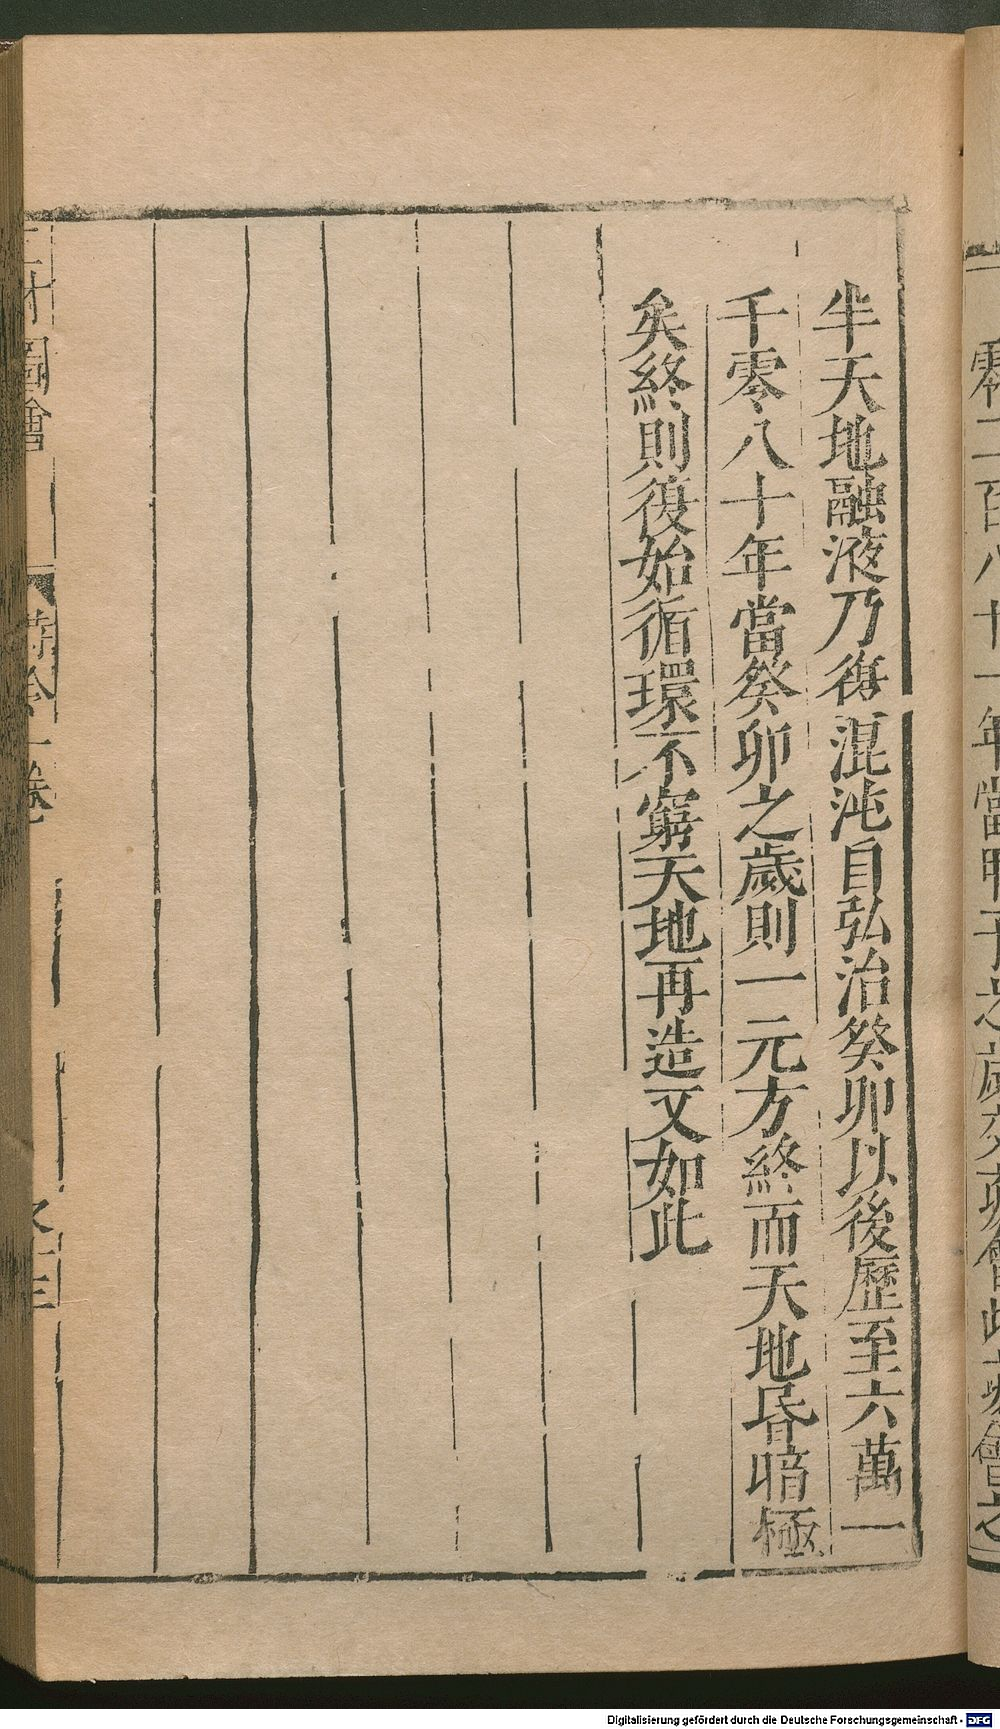 零二百八十一年當甲子之歲交亥會此亥會之
半天地融液乃復混沌自弘治癸卯以後歷至六萬一
千零八十年當癸卯之歲則一元方終而天地昏暗極
矣終則復始循環不窮天地再造又如此
三才圖會
時令一卷
Digitalisierung gefördert durch die Deutsche Forschungsgemeinschaft - DFG